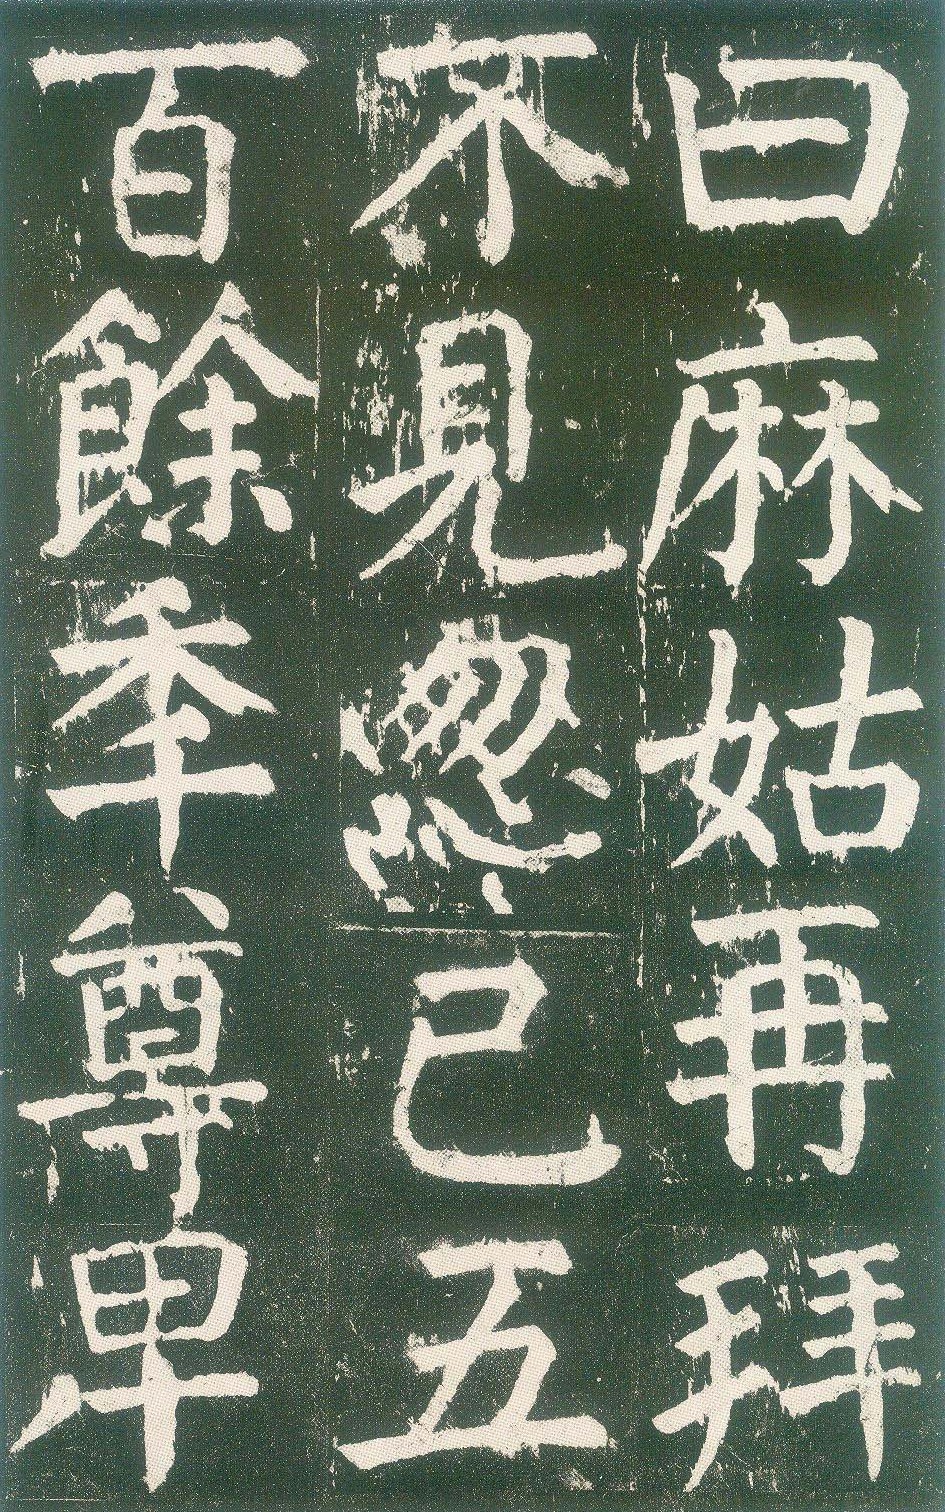 曰麻姑再拜
不見忽已五
百餘年尊卑